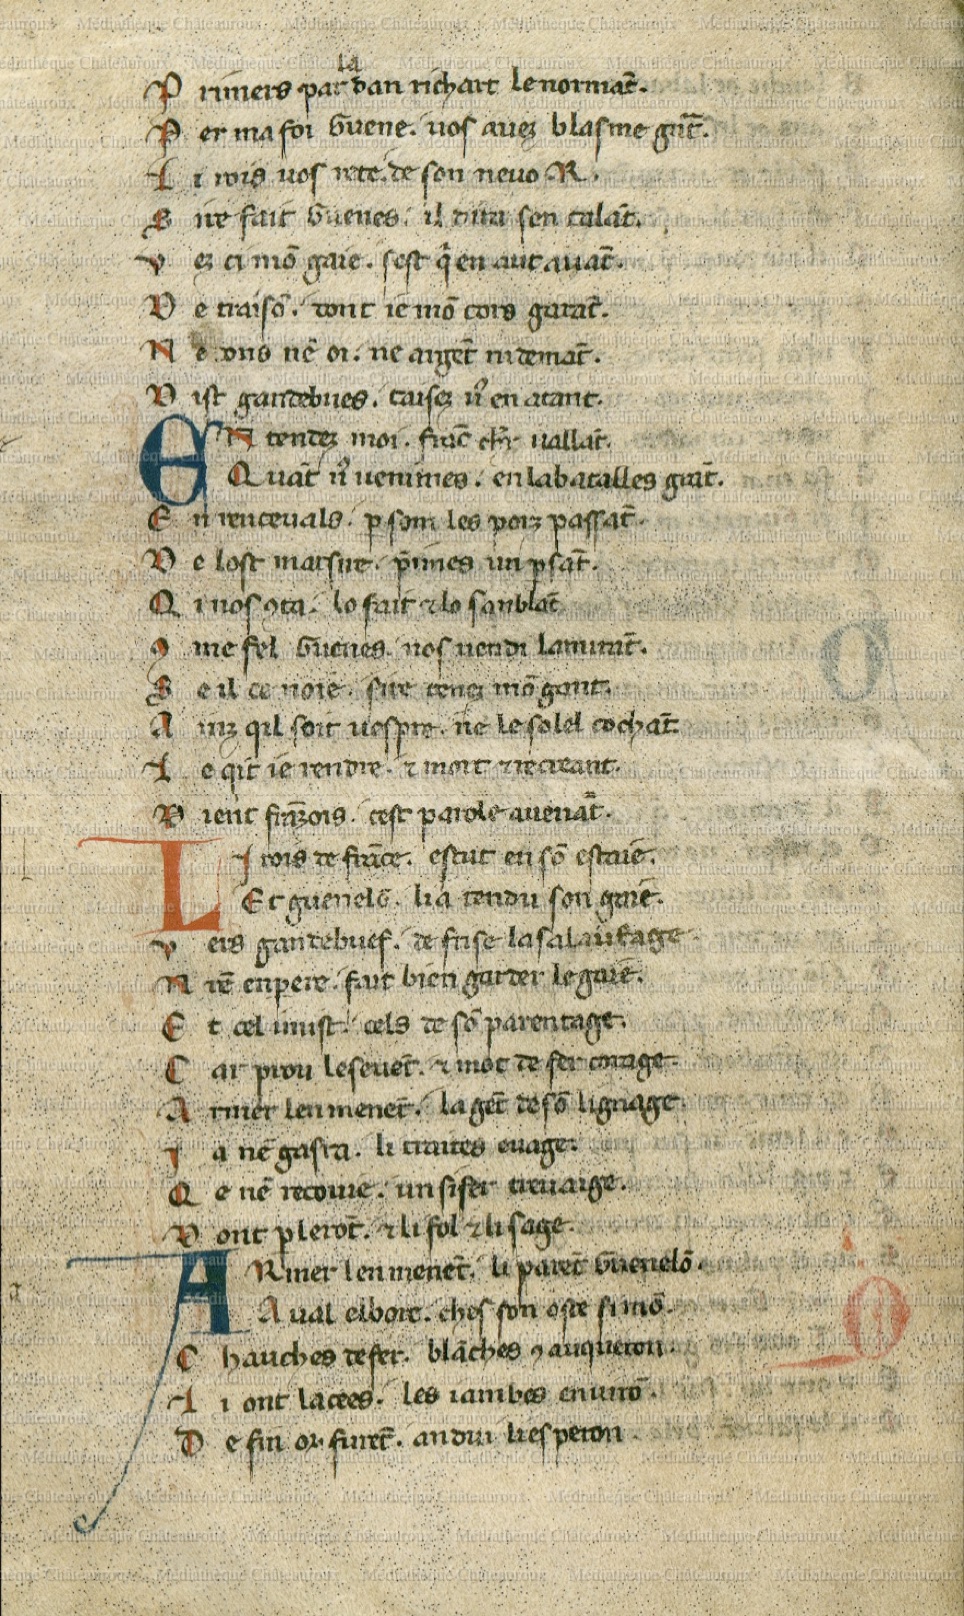 la
P rimers par dan richart le normāt.
P er ma foi Guene. uos auez blasme grāt.
L i rois uos rete. de son neuo R.
S ire fait Guenes. il dira son talāt.
V ez ci mō gaie. sest q̓ en aut auāt.
D e traisō. dont ie mō cors garāt.
N e vous nē oi. ne argēt ni demāt.
D ist gandebues. taisez uͦ en atant.
EN tendez moi. frāc chr̄ uallāt.
Quāt uͦ uenimes. en la batailles grāt.
E n renceuals. p som les porz passāt.
D e lost marsire. p̄imes un psāt.
Q i nos ꝯta. lo fait ⁊ lo sanblāt
Q me fel Guenes. nos uendi lamirāt.
S e il ce noie. sire tenez mō gant.
A inz qil soit uespre. ne le solel cochāt.
L e qit ie rendre. ⁊ mort ⁊ recreant.
D ient frāzois. cest parole auenāt.
LI rois de frāce. estut en sō estaiē.
Et guenelō. li a tendu son gaiē.
V ers gandebuef. de frise la salauſage
N rē enpere. fait bien garder le gaiē.
E t cel mist. cels de sō parentage.
C ar prou le seuēt. ⁊ mot de fer corage.
A rmer len menēt. la gēt de sō lignage.
I a nē gastra. li traites euage.
Q e nē recouie. un si fer treuaige.
D ont plerōt. ⁊ li fol ⁊ li sage.
ARmer len menēt. li parēt Guenelō.
A ual el borc. ches son oste simō.
C hauches de fer. blāches ꝯ auqueton.
L i ont lacees. les iambes enuirō.
D e fin or furēt. andui li esperon